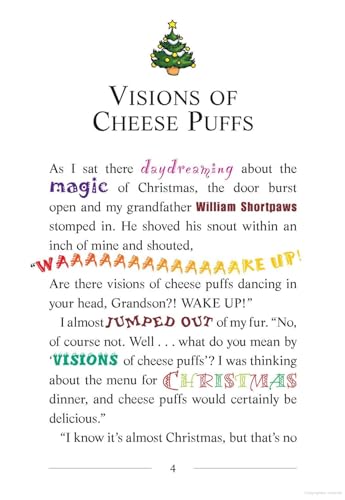 VISIONS OF
CHEESE PUFFS
As I sat there daydreaming about the
magic of Christmas, the door burst
open and my grandfather William Shortpaws
stomped in. He shoved his snout within an
inch of mine and shouted,
“WAAAAAAAAAAAAAKE UP!
Are there visions of cheese puffs dancing in
your head, Grandson?! WAKE UP!”
I almost JUMPED OUT of my fur. “No,
of course not. Well . . . what do you mean by
‘VISIONS of cheese puffs’? I was thinking
about the menu for CHRISTMAS
dinner, and cheese puffs would certainly be
delicious.”
“I know it’s almost Christmas, but that’s no
4